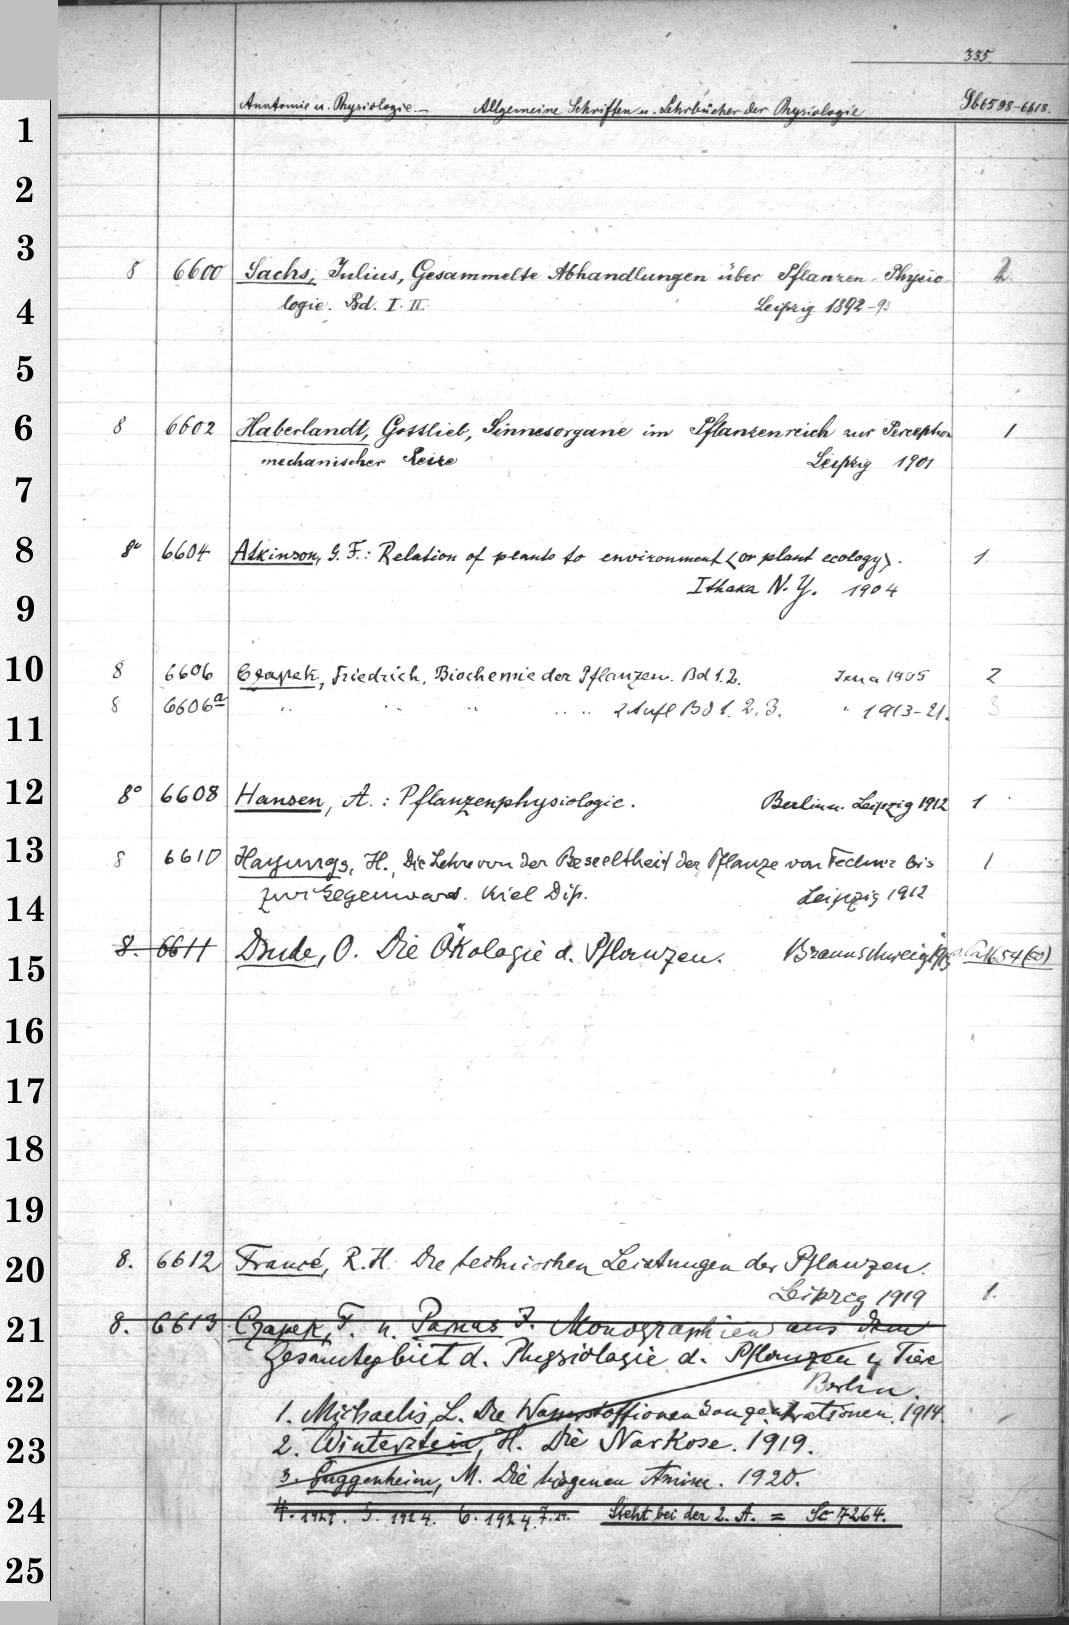 335
Anatomie u. Physiologie. – Allgemeine Schriften u. Lehrbücher der Physiologie Sb 6598-6618.
1
2
3
8 6600 Sachs, Julius, Gesammelte Abhandlungen über Pflanzen-Physio- 2
logie. Bd. I. II. Leipzig 1892-93
4
5
6
8 6602 Haberlandt, Gottlieb, Sinnesorgane im Pflanzenreich zur Perception 1
mechanischer Reize Leipzig 1901
7
8
8° 6604 Atkinson, G. F.: Relation of plants to environment <or plant ecology>. 1
Ithaka N. Y. 1904
9
10
8 6606 Czapek, Friedrich, Biochemie der Pflanzen. Bd 1. 2. Jena 1905 2
8 6606a " " " " " 2 Aufl Bd 1. 2. 3. " 1913-21. 3
11
12
8° 6608 Hansen, A.: Pflanzenphysiologie. Berlin u. Leipzig 1912 1
13
8 6610 Hayungs, H., Die Lehre von der Beseeltheit der Pflanze von Fechner bis 1
zur Gegenward. Kiel Diss. Leipzig 1912
14
15
8. 6611 Drude, O. Die Ökologie d. Pflanzen. Braunschweig 1913
16
17
18
19
20
8. 6612 Francé, R. H. Die technischen Leistungen der Pflanzen.
Leipzig 1919 1.
21
8. 6613 Czapek, F. u. Parnas J. Monographien aus dem
Gesamtgebiet d. Physiologie d. Pflanzen u Tiere
22
Berlin.
1. Michaelis, L. Die Wasserstoffionenkonzentrationen. 1914.
23
2. Winterstein, H. Die Narkose. 1919.
3. Guggenheim, M. Die biogenen Amine. 1920.
24
4. 1921. 5. 1924. 6. 1924. 7. 24. Steht bei der 2. A. = Sc 7264.
25